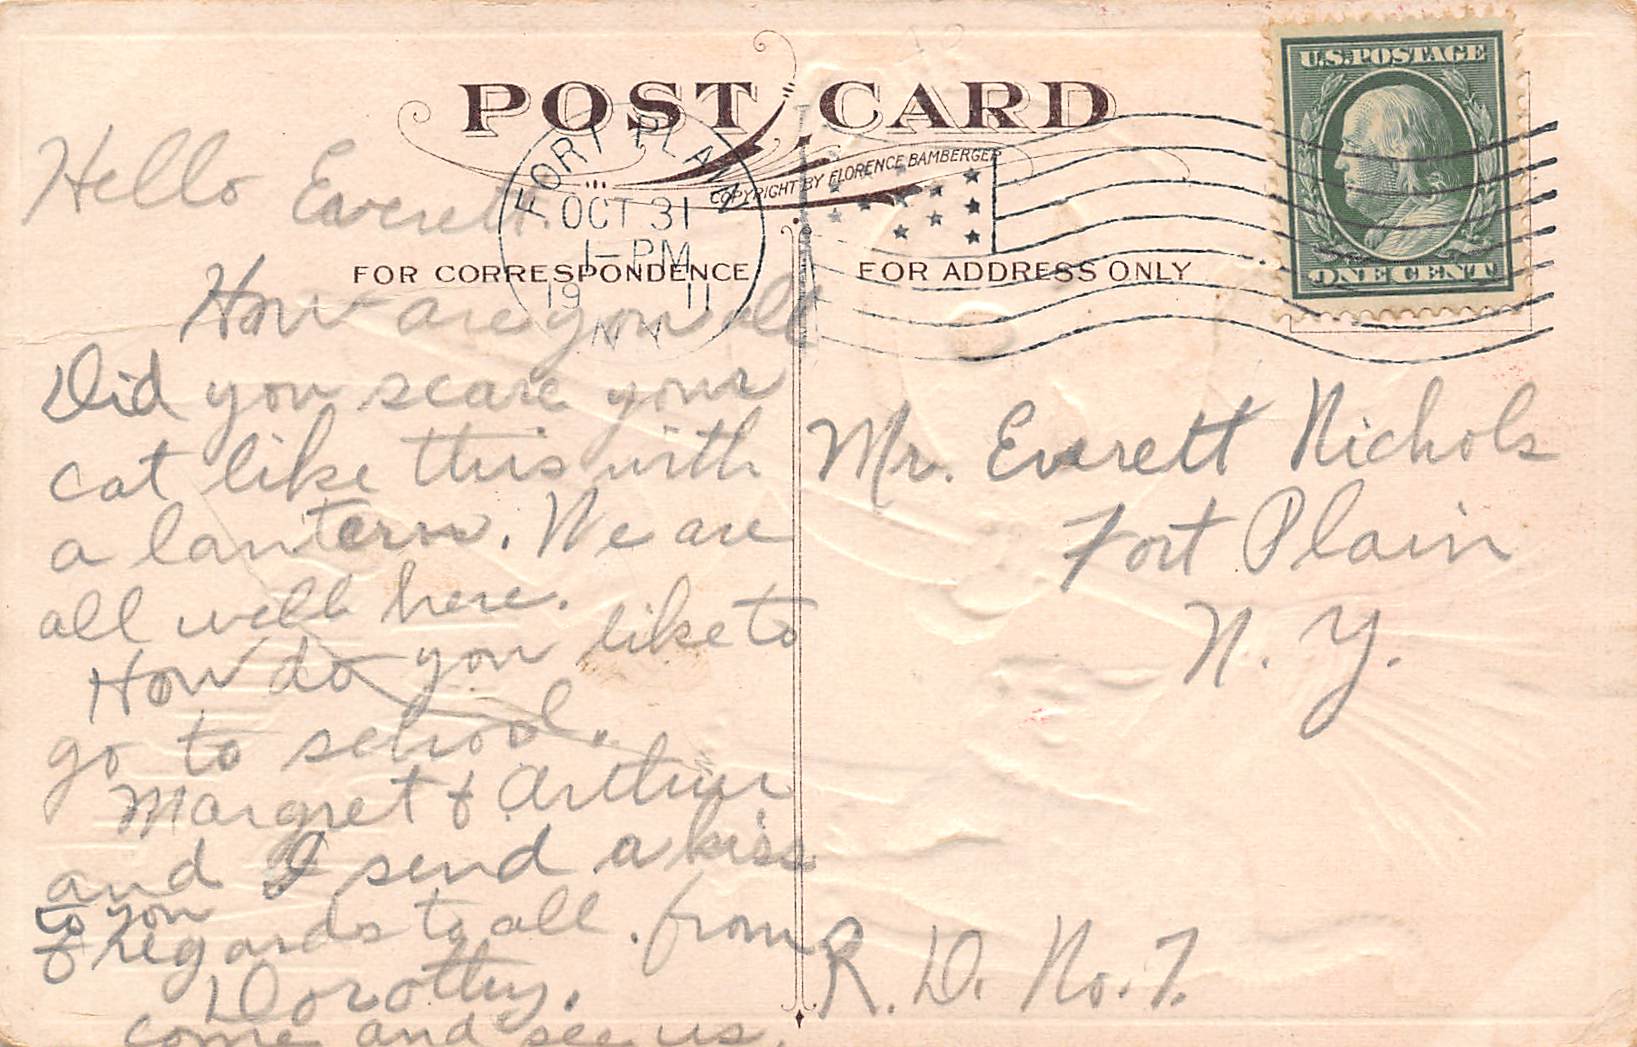 POST CARD
COPYRIGHT BY FLORENCE BAMBERGER
FOR CORRESPONDENCE
FOR ADDRESS ONLY
U.S. POSTAGE
ONE CENT
FORT PLAIN
OCT 31
1-PM
19 11
N.Y.
Hello Everett.
How are you all
Did you scare your
cat like this with
a lantern. We are
all well here.
How do you like to
go to school.
Margret & Arthur
and I send a kiss
to you
& regards to all. from
Dorothy.
come and see us.
Mr. Everett Nichols
Fort Plain
N. Y.
R. D. No. 7.